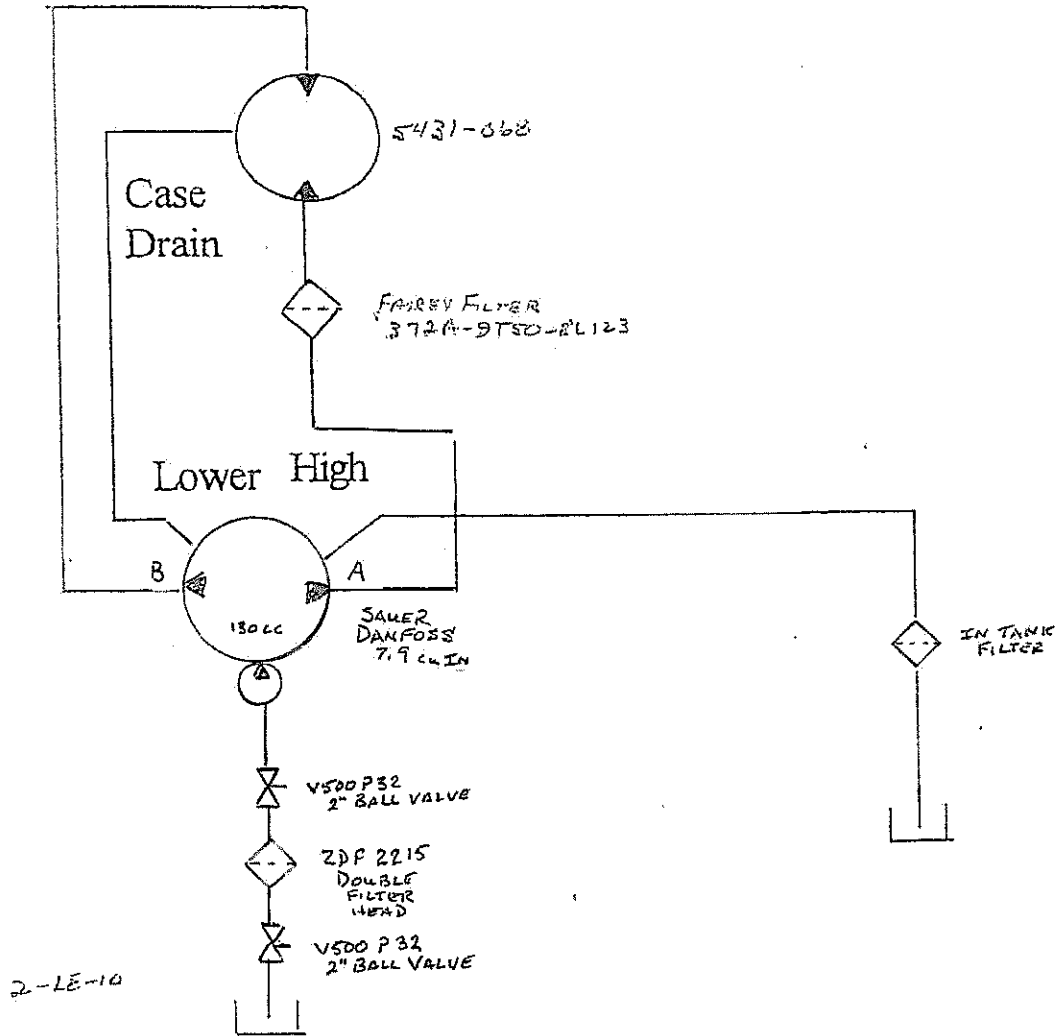 5431-068
Case
Drain
FAIREY FILTER
372A-9T50-2L123
Lower High
B
A
130CC
SAUER
DANFOSS
7.9 cu IN
IN TANK
FILTER
V500P32
2" BALL VALVE
ZDF 2215
DOUBLE
FILTER
HEAD
V500 P 32
2" BALL VALVE
2-LE-10